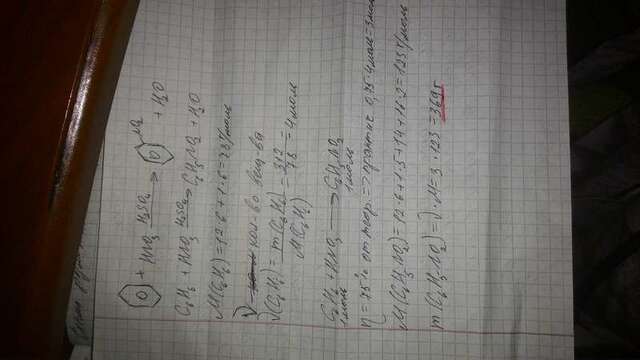 + HNO₃ H₂SO₄ → NO₂ + H₂O
C₆H₆ + HNO₃ H₂SO₄ → C₆H₅NO₂ + H₂O
M(C₆H₆) = 12·6 + 1·6 = 78 г/моль
√ кол-во вещ-ва
√(C₆H₆) = m(C₆H₆) / M(C₆H₆) = 312 / 78 = 4 моль
C₆H₆ + HNO₃ → C₆H₅NO₂
1 моль 1 моль
η = 75% от теор. => практич 0,75·4 моль = 3 моль
M(C₆H₅NO₂) = 12·6 + 1·5 + 14 + 16·2 = 123 г/моль
m(C₆H₅NO₂) = √·M = 3·123 = 369 г